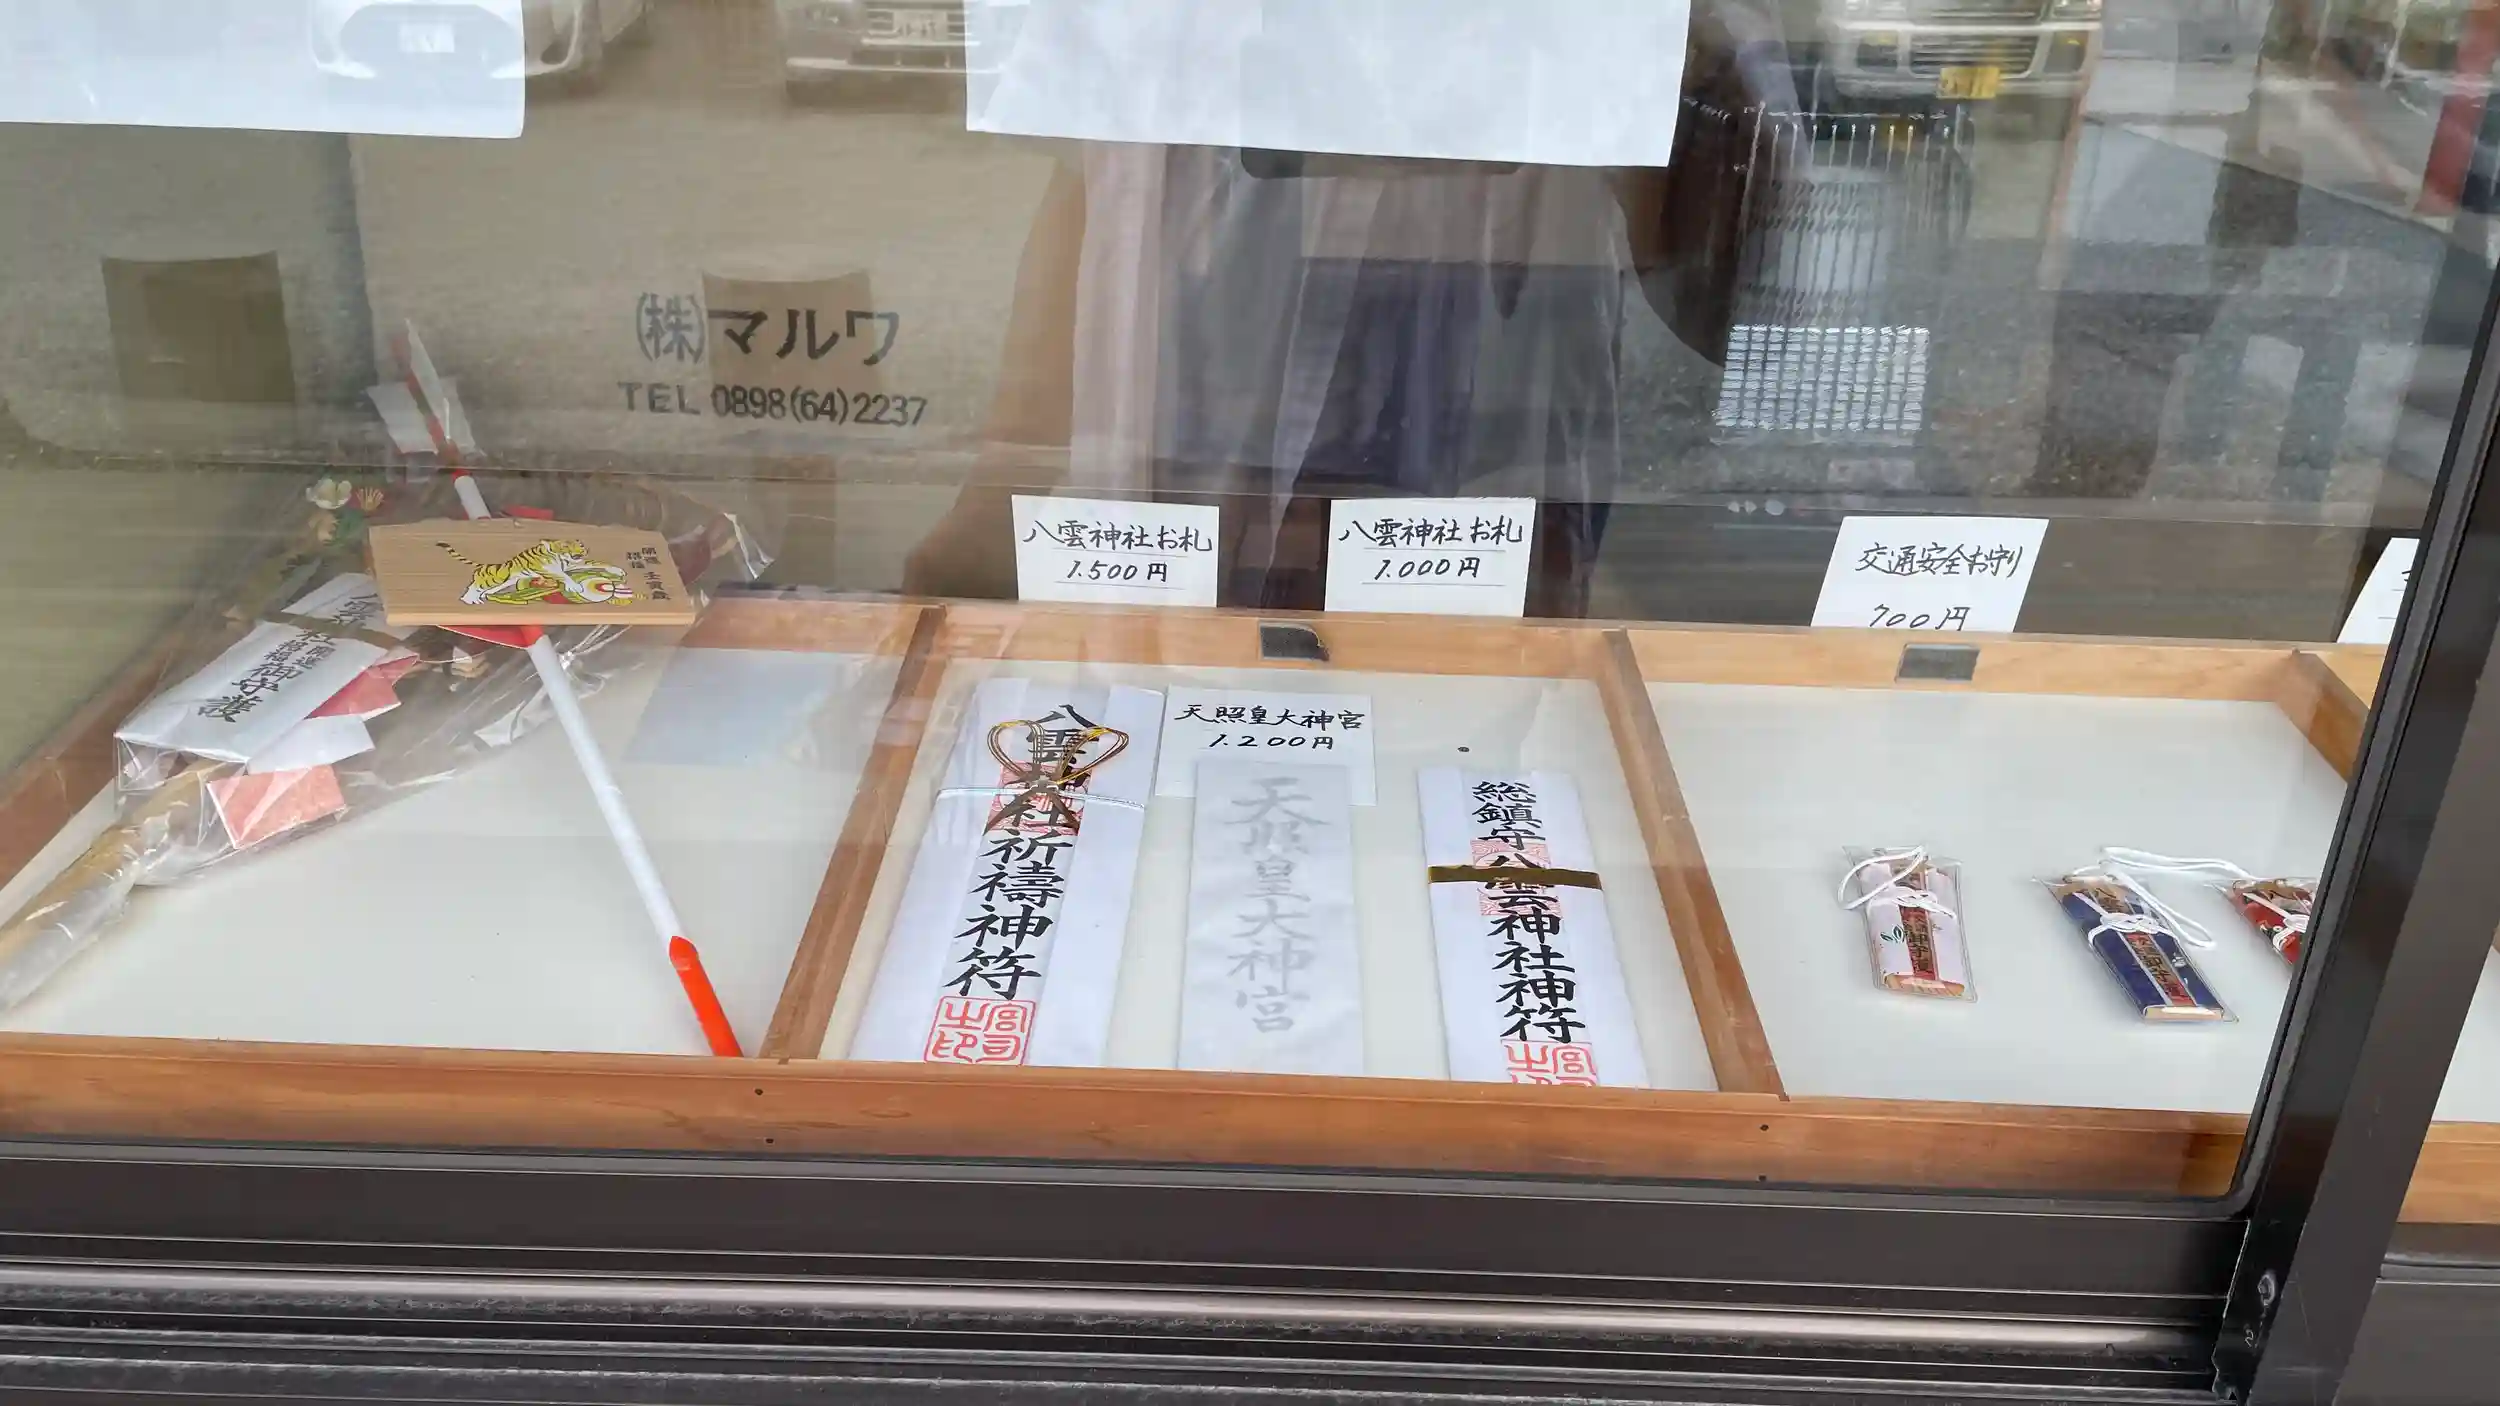 ㈱マルワ
TEL 0898(64)2237
開運
招福
壬寅歳
開運
招福
御守護
八雲神社お札
1.500円
八雲神社お札
1.000円
交通安全お守り
700円
天照皇大神宮
1.200円
八雲神社祈禱神符
宮司之印
天照皇大神宮
総鎮守八雲神社神符